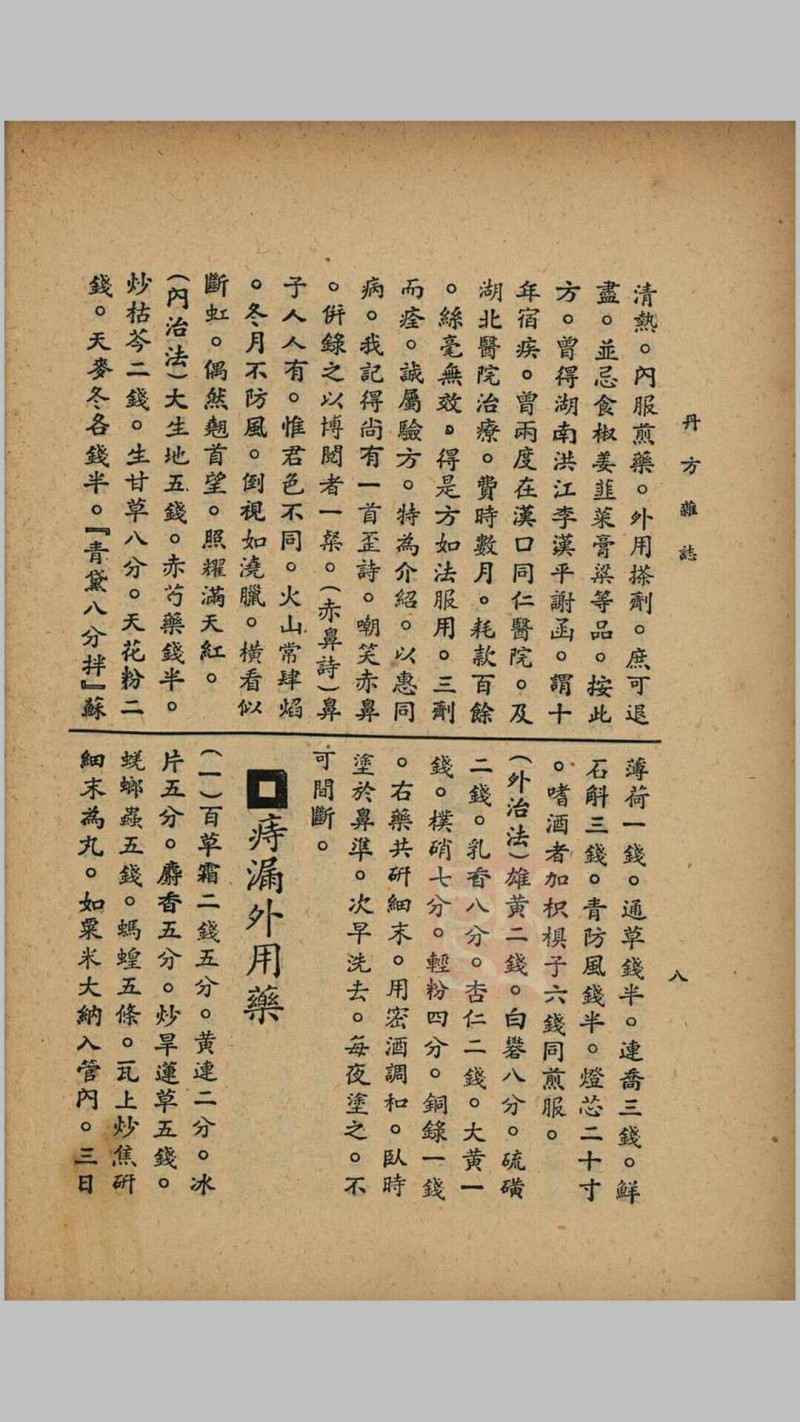 丹方雜誌
八
清熱。內服煎藥。外用搽劑。庶可退
盡。並忌食椒姜韮菜膏粱等品。按此
方。曾得湖南洪江李漢平謝函。謂十
年宿疾。曾兩度在漢口同仁醫院。及
湖北醫院治療。費時數月。耗款百餘
。絲毫無效。得是方如法服用。三劑
而痊。誠屬驗方。特為介紹。以惠同
病。我記得尚有一首歪詩。嘲笑赤鼻
。併錄之以博閱者一粲。(赤鼻詩)鼻
子人人有。惟君色不同。火山常肆焰
。冬月不防風。倒視如澆臘。橫看似
斷虹。偶然翹首望。照耀滿天紅。
(內治法)大生地五錢。赤芍藥錢半。
炒枯芩二錢。生甘草八分。天花粉二
錢。天麥冬各錢半。『青黛八分拌』蘇
薄荷一錢。通草錢半。連喬三錢。鮮
石斛三錢。青防風錢半。燈芯二十寸
。嗜酒者加枳椇子六錢同煎服。
(外治法)雄黃二錢。白礬八分。硫磺
二錢。乳香八分。杏仁二錢。大黃一
錢。樸硝七分。輕粉四分。銅錄一錢
。右藥共研細末。用密酒調和。臥時
塗於鼻準。次早洗去。每夜塗之。不
可間斷。
痔漏外用藥
(一)百草霜二錢五分。黃連二分。冰
片五分。麝香五分。炒旱蓮草五錢。
蜣螂蟲五錢。螞蝗五條。瓦上炒焦研
細末為丸。如粟米大納入管內。三日